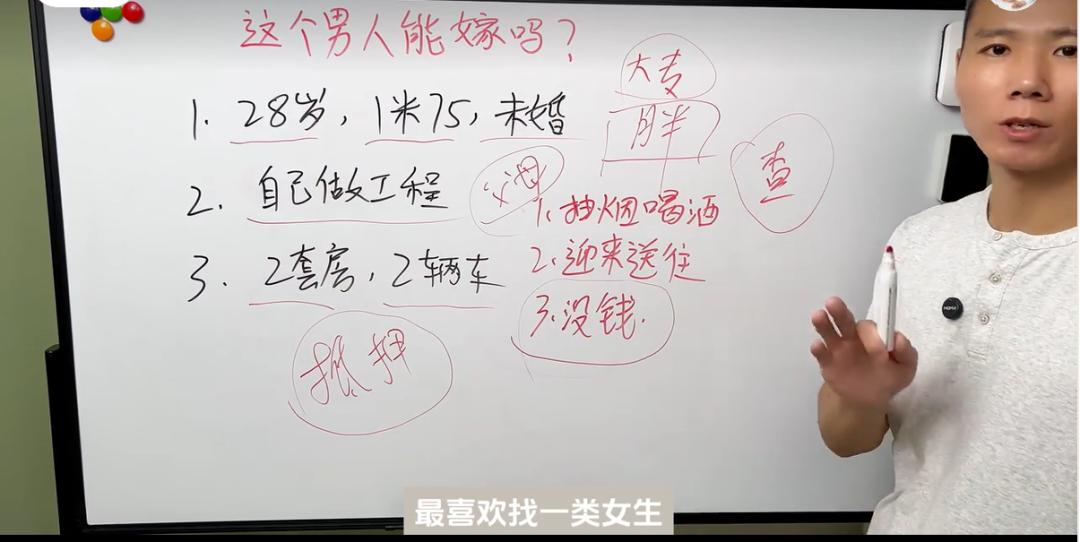 这个男人能嫁吗？
大专
1. 28岁，1米75，未婚
胖
查
2. 自己做工程
父母
1. 抽烟喝酒
2. 迎来送往
3. 2套房，2辆车
3. 没钱.
抵押
最喜欢找一类女生